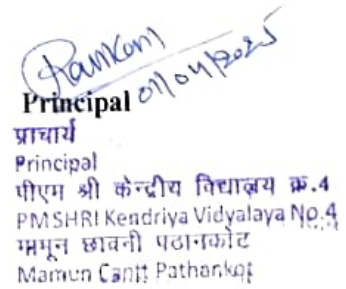 01/04/2025
Principal
प्राचार्य
Principal
पीएम श्री केन्द्रीय विद्यालय क्र.4
PM SHRI Kendriya Vidyalaya No.4
मामून छावनी पठानकोट
Mamun Cantt Pathankot